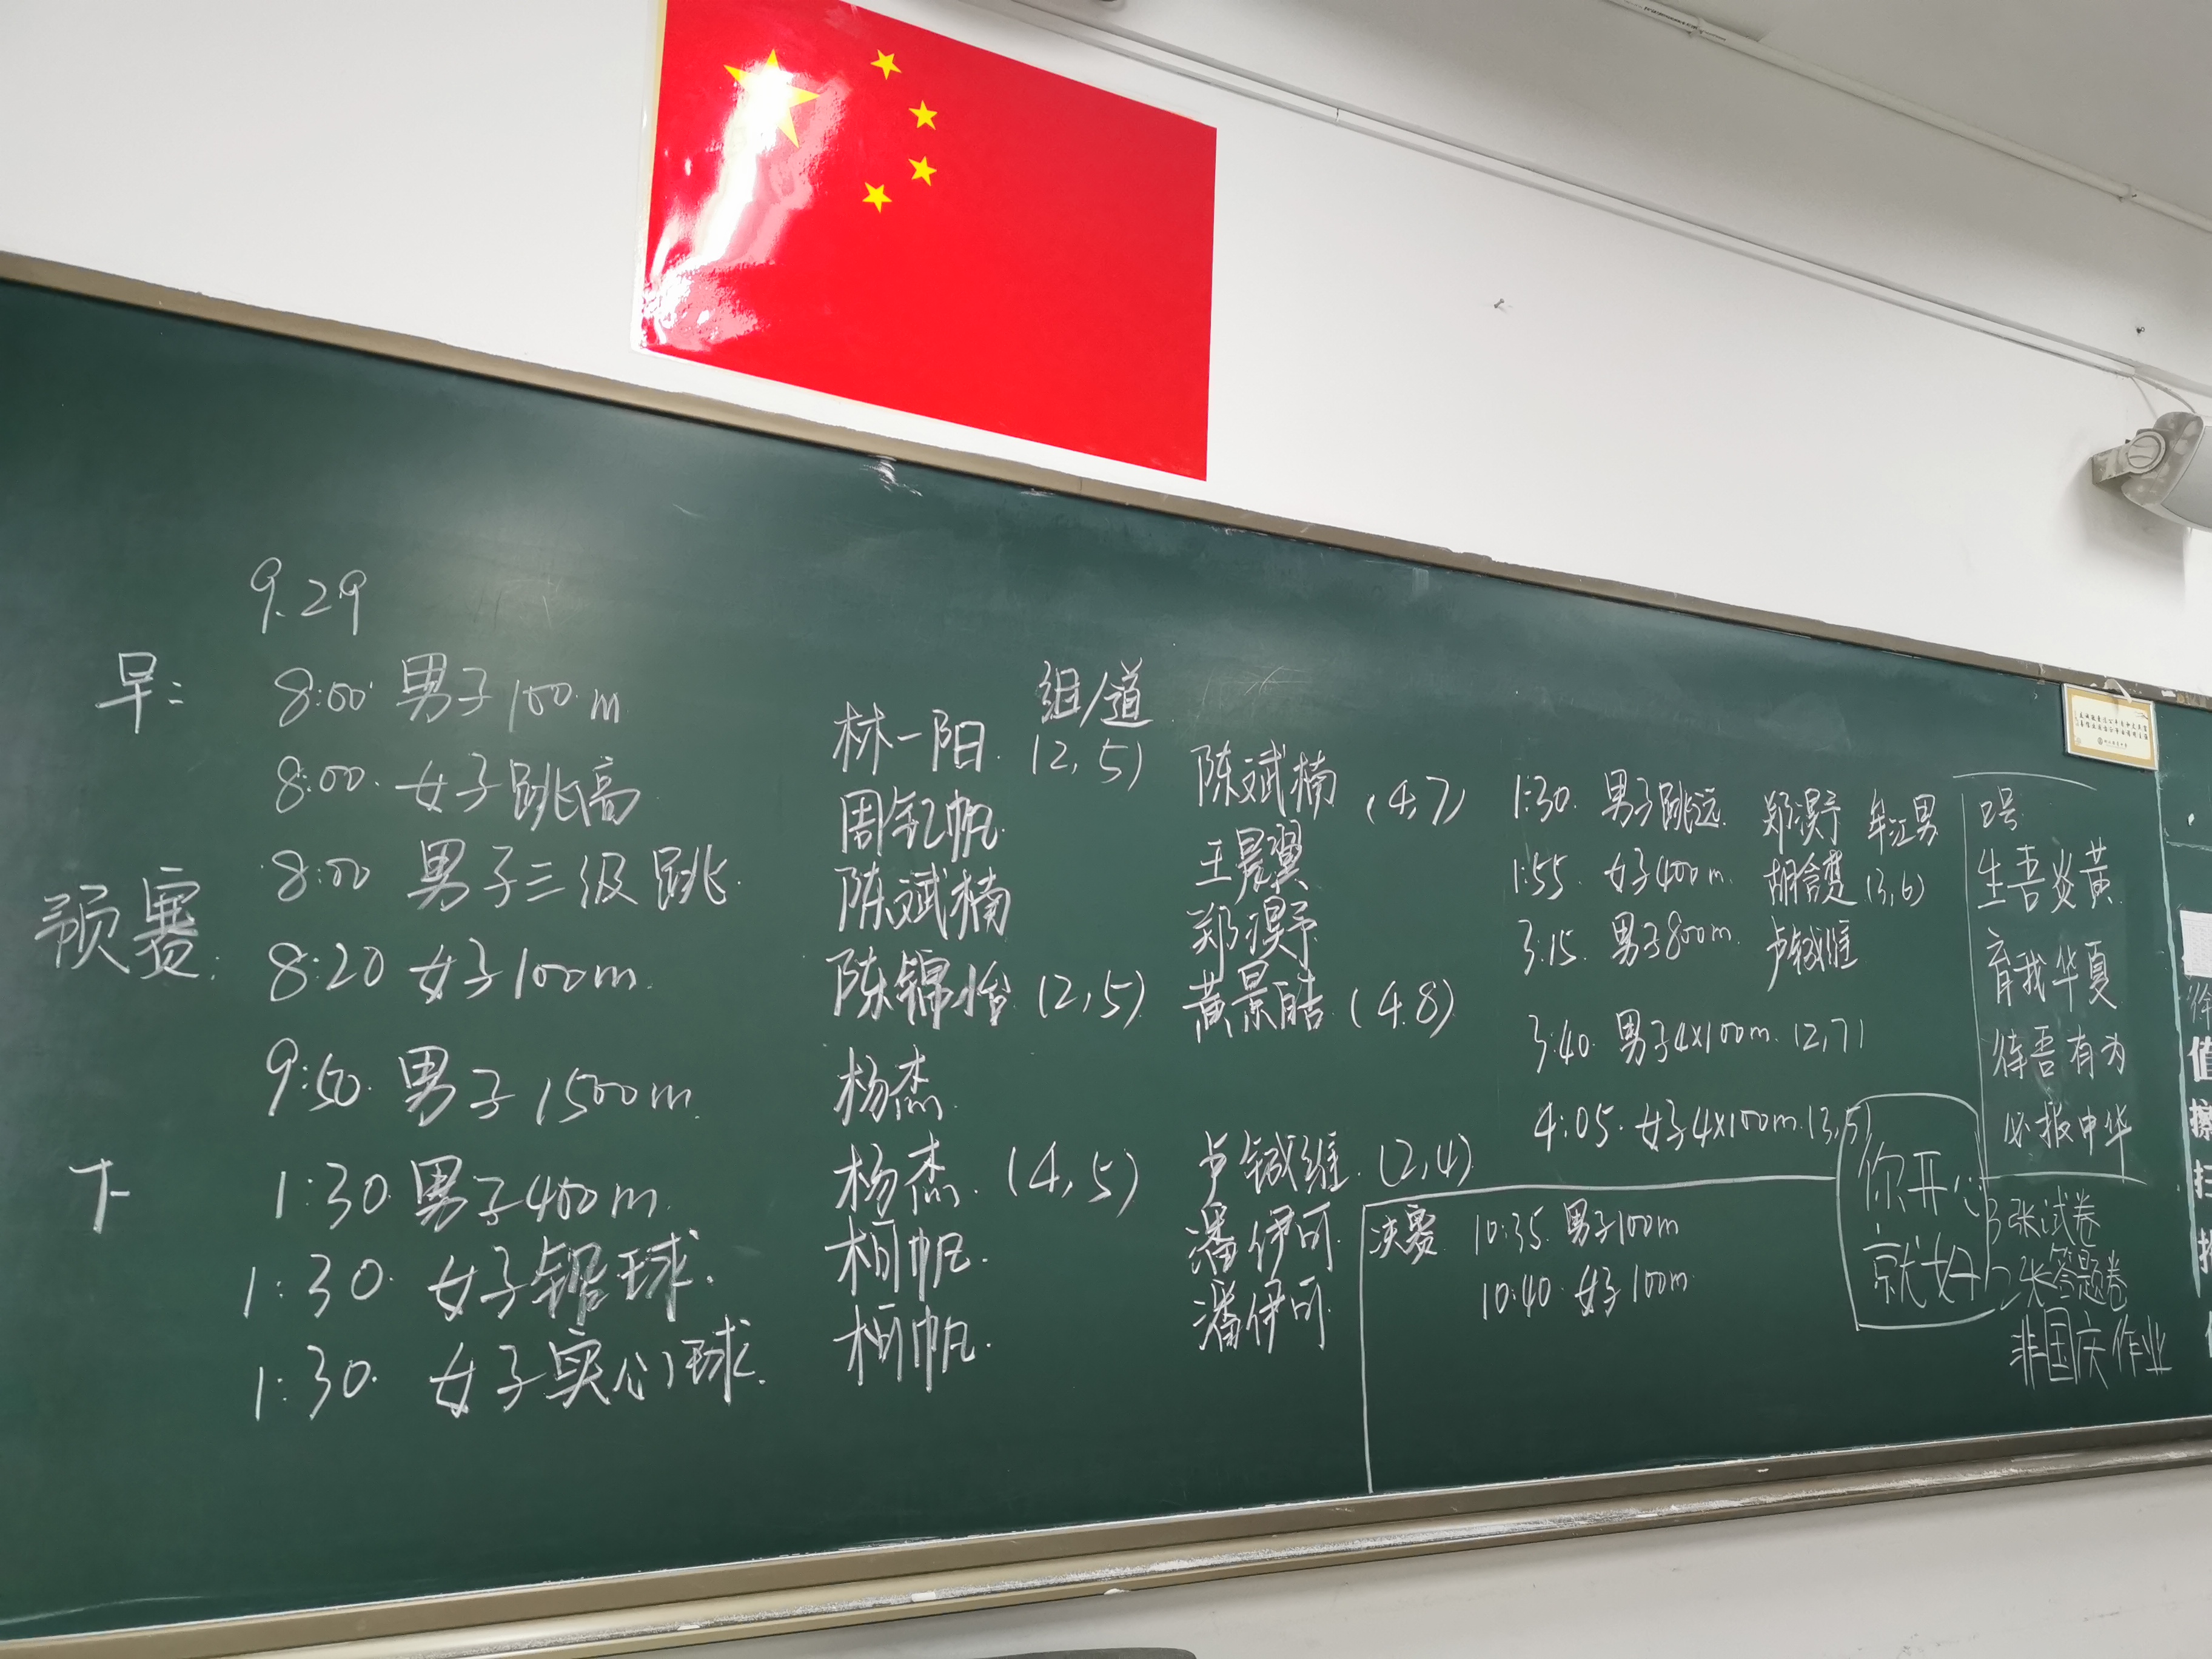 9.29
组/道
早: 8:00 男子100m 林一阳 (2,5) 陈斌楠 (4,7)
8:00 女子跳高 周钇帆 王晨翼
预赛: 8:00 男子三级跳 陈斌楠 郑淏予
8:20 女子100m 陈锦怡 (2,5) 黄景皓 (4.8)
9:50 男子1500m 杨杰
下 1:30 男子400m 杨杰 (4,5) 卢铖维 (2,4)
1:30 女子铅球 柯帆 潘伊可
1:30 女子实心球 柯帆 潘伊可
1:30 男子跳远 郑淏予 牟江男
1:55 女子400m (3,6)
3:15 男子800m 卢铖维
3:40 男子4x100m (2,7)
4:05 女子4x100m (3,5)
决赛 10:35 男子100m
10:40 女子100m
你开心
就好
口号
生吾炎黄
育我华夏
待吾有为
必报中华
3张试卷
2张答题卷
非国庆作业
值
擦